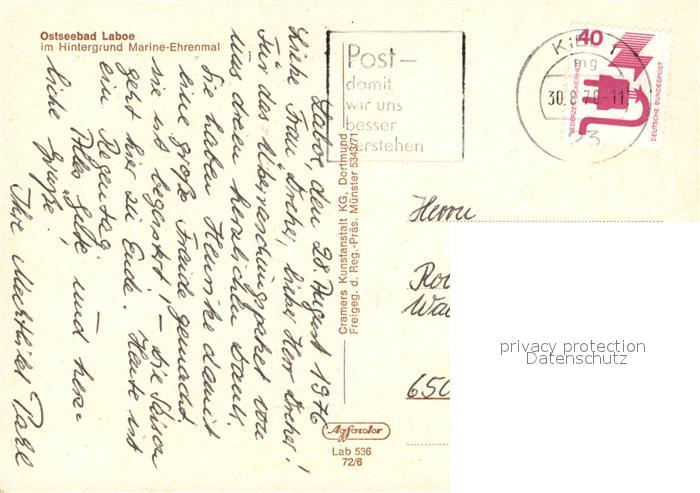 Ostseebad Laboe
im Hintergrund Marine-Ehrenmal
Laboe, den 28. August 1976
Liebe Frau Dreher, lieber Herr Dreher!
Für das Überraschungspaket von
uns dreien herzlichen Dank.
Sie haben Henrike damit
eine große Freude gemacht,
sie ist begeistert! – Die Saison
geht hier zu Ende. Heute ist
ein Regentag.
Alles Gute und herz-
liche Grüße!
Ihre
Cramers Kunstanstalt KG, Dortmund
Freigeg. d. Reg.-Präs. Münster 5343/71
Agfacolor
Lab 536
72/6
Post –
damit
wir uns
besser
verstehen
KIEL 1
mg
30.8.76-11
23
40
JEDERZEIT SICHERHEIT
DEUTSCHE BUNDESPOST
Herrn
650
privacy protection
Datenschutz